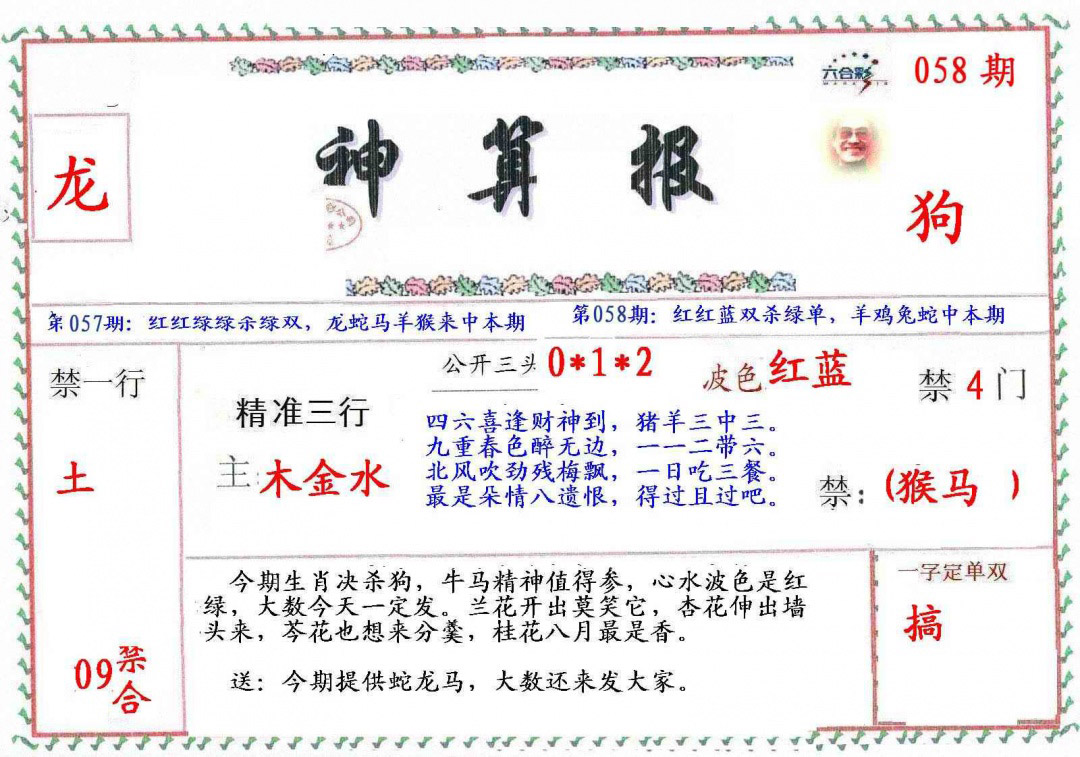 六合彩
058 期
龙
神算报
狗
第057期：红红绿绿杀绿双，龙蛇马羊猴来中本期
第058期：红红蓝双杀绿单，羊鸡兔蛇中本期
禁一行
土
09 禁合
公开三头 0*1*2
波色 红蓝
禁 4 门
精准三行
主：木金水
四六喜逢财神到，猪羊三中三。
九重春色醉无边，一一二带六。
北风吹劲残梅飘，一日吃三餐。
最是朵情八遗恨，得过且过吧。
禁：(猴马 )
今期生肖决杀狗，牛马精神值得参，心水波色是红
绿，大数今天一定发。兰花开出莫笑它，杏花伸出墙
头来，芩花也想来分羹，桂花八月最是香。
送：今期提供蛇龙马，大数还来发大家。
一字定单双
搞